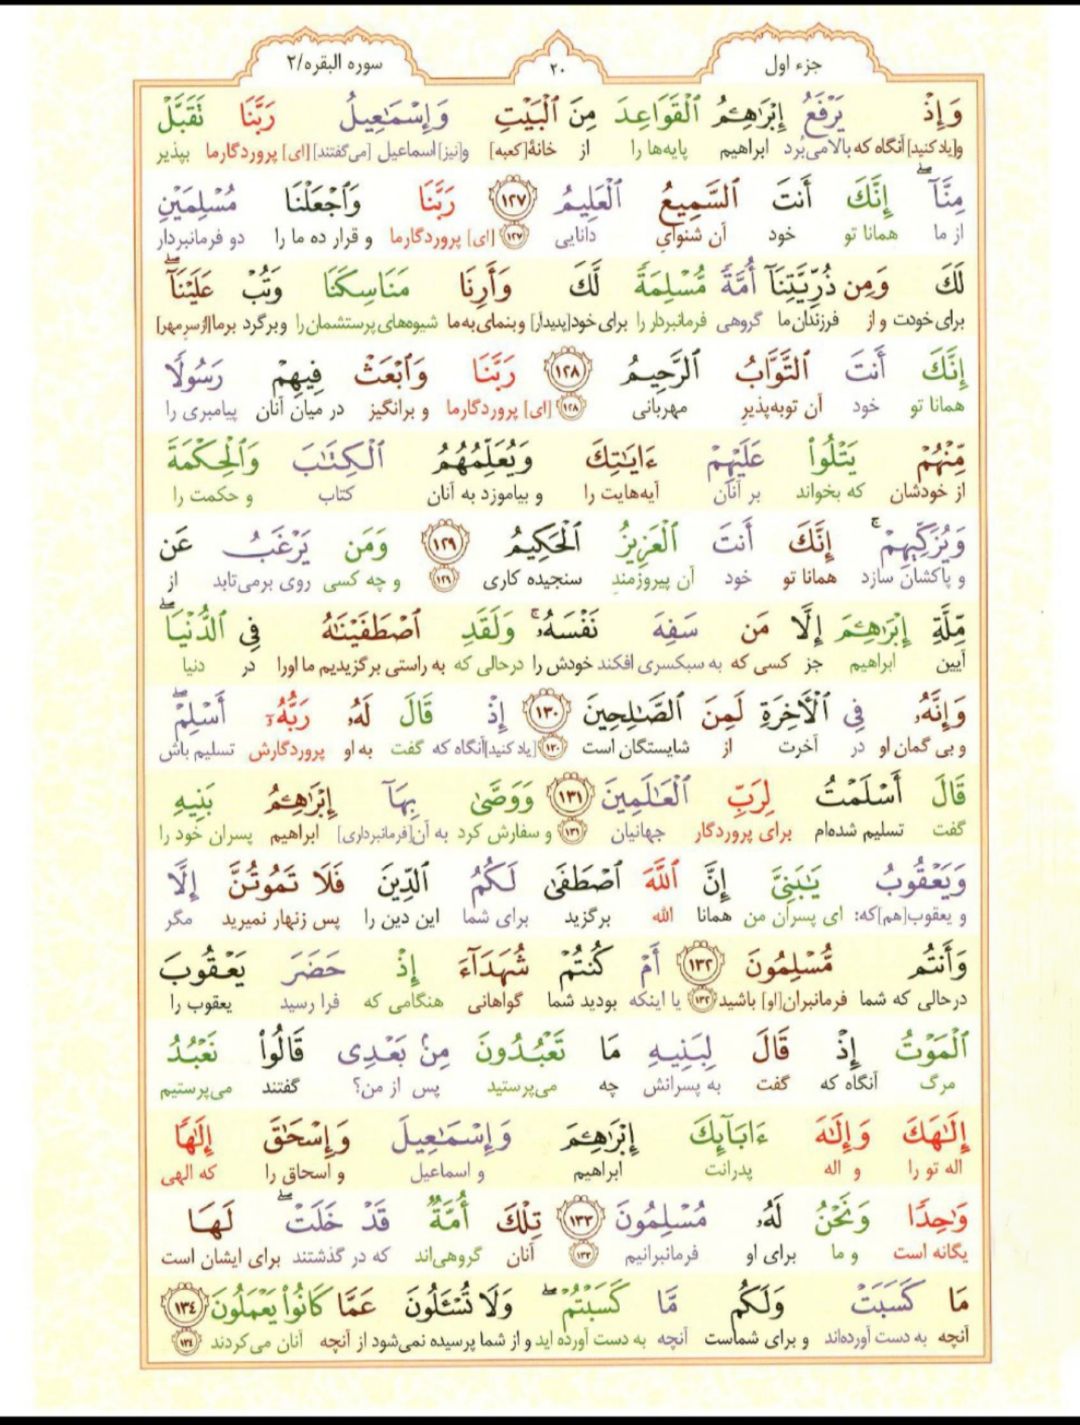 جزء اول
۲۰
سوره البقره/۲
وَإِذْ يَرْفَعُ إِبْرَٰهِـۧمُ ٱلْقَوَاعِدَ مِنَ ٱلْبَيْتِ وَإِسْمَـٰعِيلُ رَبَّنَا تَقَبَّلْ
و[یاد کنید] آنگاه که بالا می‌بُرد ابراهیم پایه‌ها را از خانهٔ [کعبه] و[نیز] اسماعیل [می‌گفتند] [ای] پروردگارما بپذیر
مِنَّآ ۖ إِنَّكَ أَنتَ ٱلسَّمِيعُ ٱلْعَلِيمُ ﴿١٢٧﴾ رَبَّنَا وَٱجْعَلْنَا مُسْلِمَيْنِ
از ما همانا تو خود آن شنوایِ دانایی ﴿۱۲۷﴾ [ای] پروردگارما و قرار ده ما را دو فرمانبردار
لَكَ وَمِن ذُرِّيَّتِنَآ أُمَّةً مُّسْلِمَةً لَّكَ وَأَرِنَا مَنَاسِكَنَا وَتُبْ عَلَيْنَآ ۖ
برای خودت و از فرزندان ما گروهی فرمانبردار را برای خود[پدیدآر] و بنمای به ما شیوه‌های پرستشمان را و برگرد برما[از سر مهر]
إِنَّكَ أَنتَ ٱلتَّوَّابُ ٱلرَّحِيمُ ﴿١٢٨﴾ رَبَّنَا وَٱبْعَثْ فِيهِمْ رَسُولًا
همانا تو خود آن توبه‌پذیرِ مهربانی ﴿۱۲۸﴾ [ای] پروردگارما و برانگیز در میان آنان پیامبری را
مِّنْهُمْ يَتْلُوا۟ عَلَيْهِمْ ءَايَـٰتِكَ وَيُعَلِّمُهُمُ ٱلْكِتَـٰبَ وَٱلْحِكْمَةَ
از خودشان که بخواند بر آنان آیه‌هایت را و بیاموزد به آنان کتاب و حکمت را
وَيُزَكِّيهِمْ ۚ إِنَّكَ أَنتَ ٱلْعَزِيزُ ٱلْحَكِيمُ ﴿١٢٩﴾ وَمَن يَرْغَبُ عَن
و پاکشان سازد همانا تو خود آن پیروزمندِ سنجیده کاری ﴿۱۲۹﴾ و چه کسی روی برمی‌تابد از
مِّلَّةِ إِبْرَٰهِـۧمَ إِلَّا مَن سَفِهَ نَفْسَهُۥ ۚ وَلَقَدِ ٱصْطَفَيْنَـٰهُ فِى ٱلدُّنْيَا ۖ
آیین ابراهیم جز کسی که به سبکسری افکند خودش را درحالی که به راستی برگزیدیم ما اورا در دنیا
وَإِنَّهُۥ فِى ٱلْـَٔاخِرَةِ لَمِنَ ٱلصَّـٰلِحِينَ ﴿١٣٠﴾ إِذْ قَالَ لَهُۥ رَبُّهُۥٓ أَسْلِمْ ۖ
و بی گمان او در آخرت از شایستگان است ﴿۱۳۰﴾ [یاد کنید] آنگاه که گفت به او پروردگارش تسلیم باش
قَالَ أَسْلَمْتُ لِرَبِّ ٱلْعَـٰلَمِينَ ﴿١٣١﴾ وَوَصَّىٰ بِهَآ إِبْرَٰهِـۧمُ بَنِيهِ
گفت تسلیم شده‌ام برای پروردگار جهانیان ﴿۱۳۱﴾ و سفارش کرد به آن[فرمانبرداری] ابراهیم پسران خود را
وَيَعْقُوبُ يَـٰبَنِىَّ إِنَّ ٱللَّهَ ٱصْطَفَىٰ لَكُمُ ٱلدِّينَ فَلَا تَمُوتُنَّ إِلَّا
و یعقوب[هم]که: ای پسران من همانا الله برگزید برای شما این دین را پس زنهار نمیرید مگر
وَأَنتُم مُّسْلِمُونَ ﴿١٣٢﴾ أَمْ كُنتُمْ شُهَدَآءَ إِذْ حَضَرَ يَعْقُوبَ
درحالی که شما فرمانبران[او] باشید ﴿۱۳۲﴾ یا اینکه بودید شما گواهانی هنگامی که فرا رسید یعقوب را
ٱلْمَوْتُ إِذْ قَالَ لِبَنِيهِ مَا تَعْبُدُونَ مِنۢ بَعْدِى قَالُوا۟ نَعْبُدُ
مرگ آنگاه که گفت به پسرانش چه می‌پرستید پس از من؟ گفتند می‌پرستیم
إِلَـٰهَكَ وَإِلَـٰهَ ءَابَآئِكَ إِبْرَٰهِـۧمَ وَإِسْمَـٰعِيلَ وَإِسْحَـٰقَ إِلَـٰهًا
اله تو را و اله پدرانت ابراهیم و اسماعیل و اسحاق را که الهی
وَٰحِدًا وَنَحْنُ لَهُۥ مُسْلِمُونَ ﴿١٣٣﴾ تِلْكَ أُمَّةٌ قَدْ خَلَتْ ۖ لَهَا
یگانه است و ما برای او فرمانبرانیم ﴿۱۳۳﴾ آنان گروهی‌اند که در گذشتند برای ایشان است
مَا كَسَبَتْ وَلَكُم مَّا كَسَبْتُمْ ۖ وَلَا تُسْـَٔلُونَ عَمَّا كَانُوا۟ يَعْمَلُونَ ﴿١٣٤﴾
آنچه به دست آورده‌اند و برای شماست آنچه به دست آورده اید و از شما پرسیده نمی‌شود از آنچه آنان می کردند ﴿۱۳۴﴾